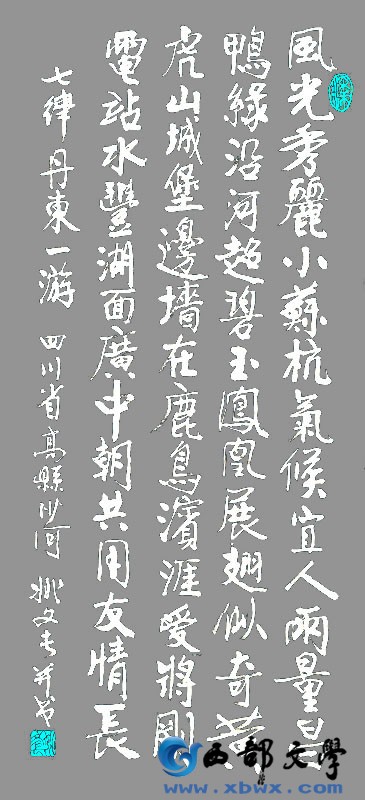 風光秀麗小蘇杭氣候宜人雨量昌
鴨緑沿河超碧玉鳳凰展翅似奇
虎山城堡邊墻在鹿島濱涯愛將剛
電站水豐湖面廣中朝共用友情長
七律 丹東一游 四川省高縣沙河 姚文 并书
西部文學
www.xbwx.com